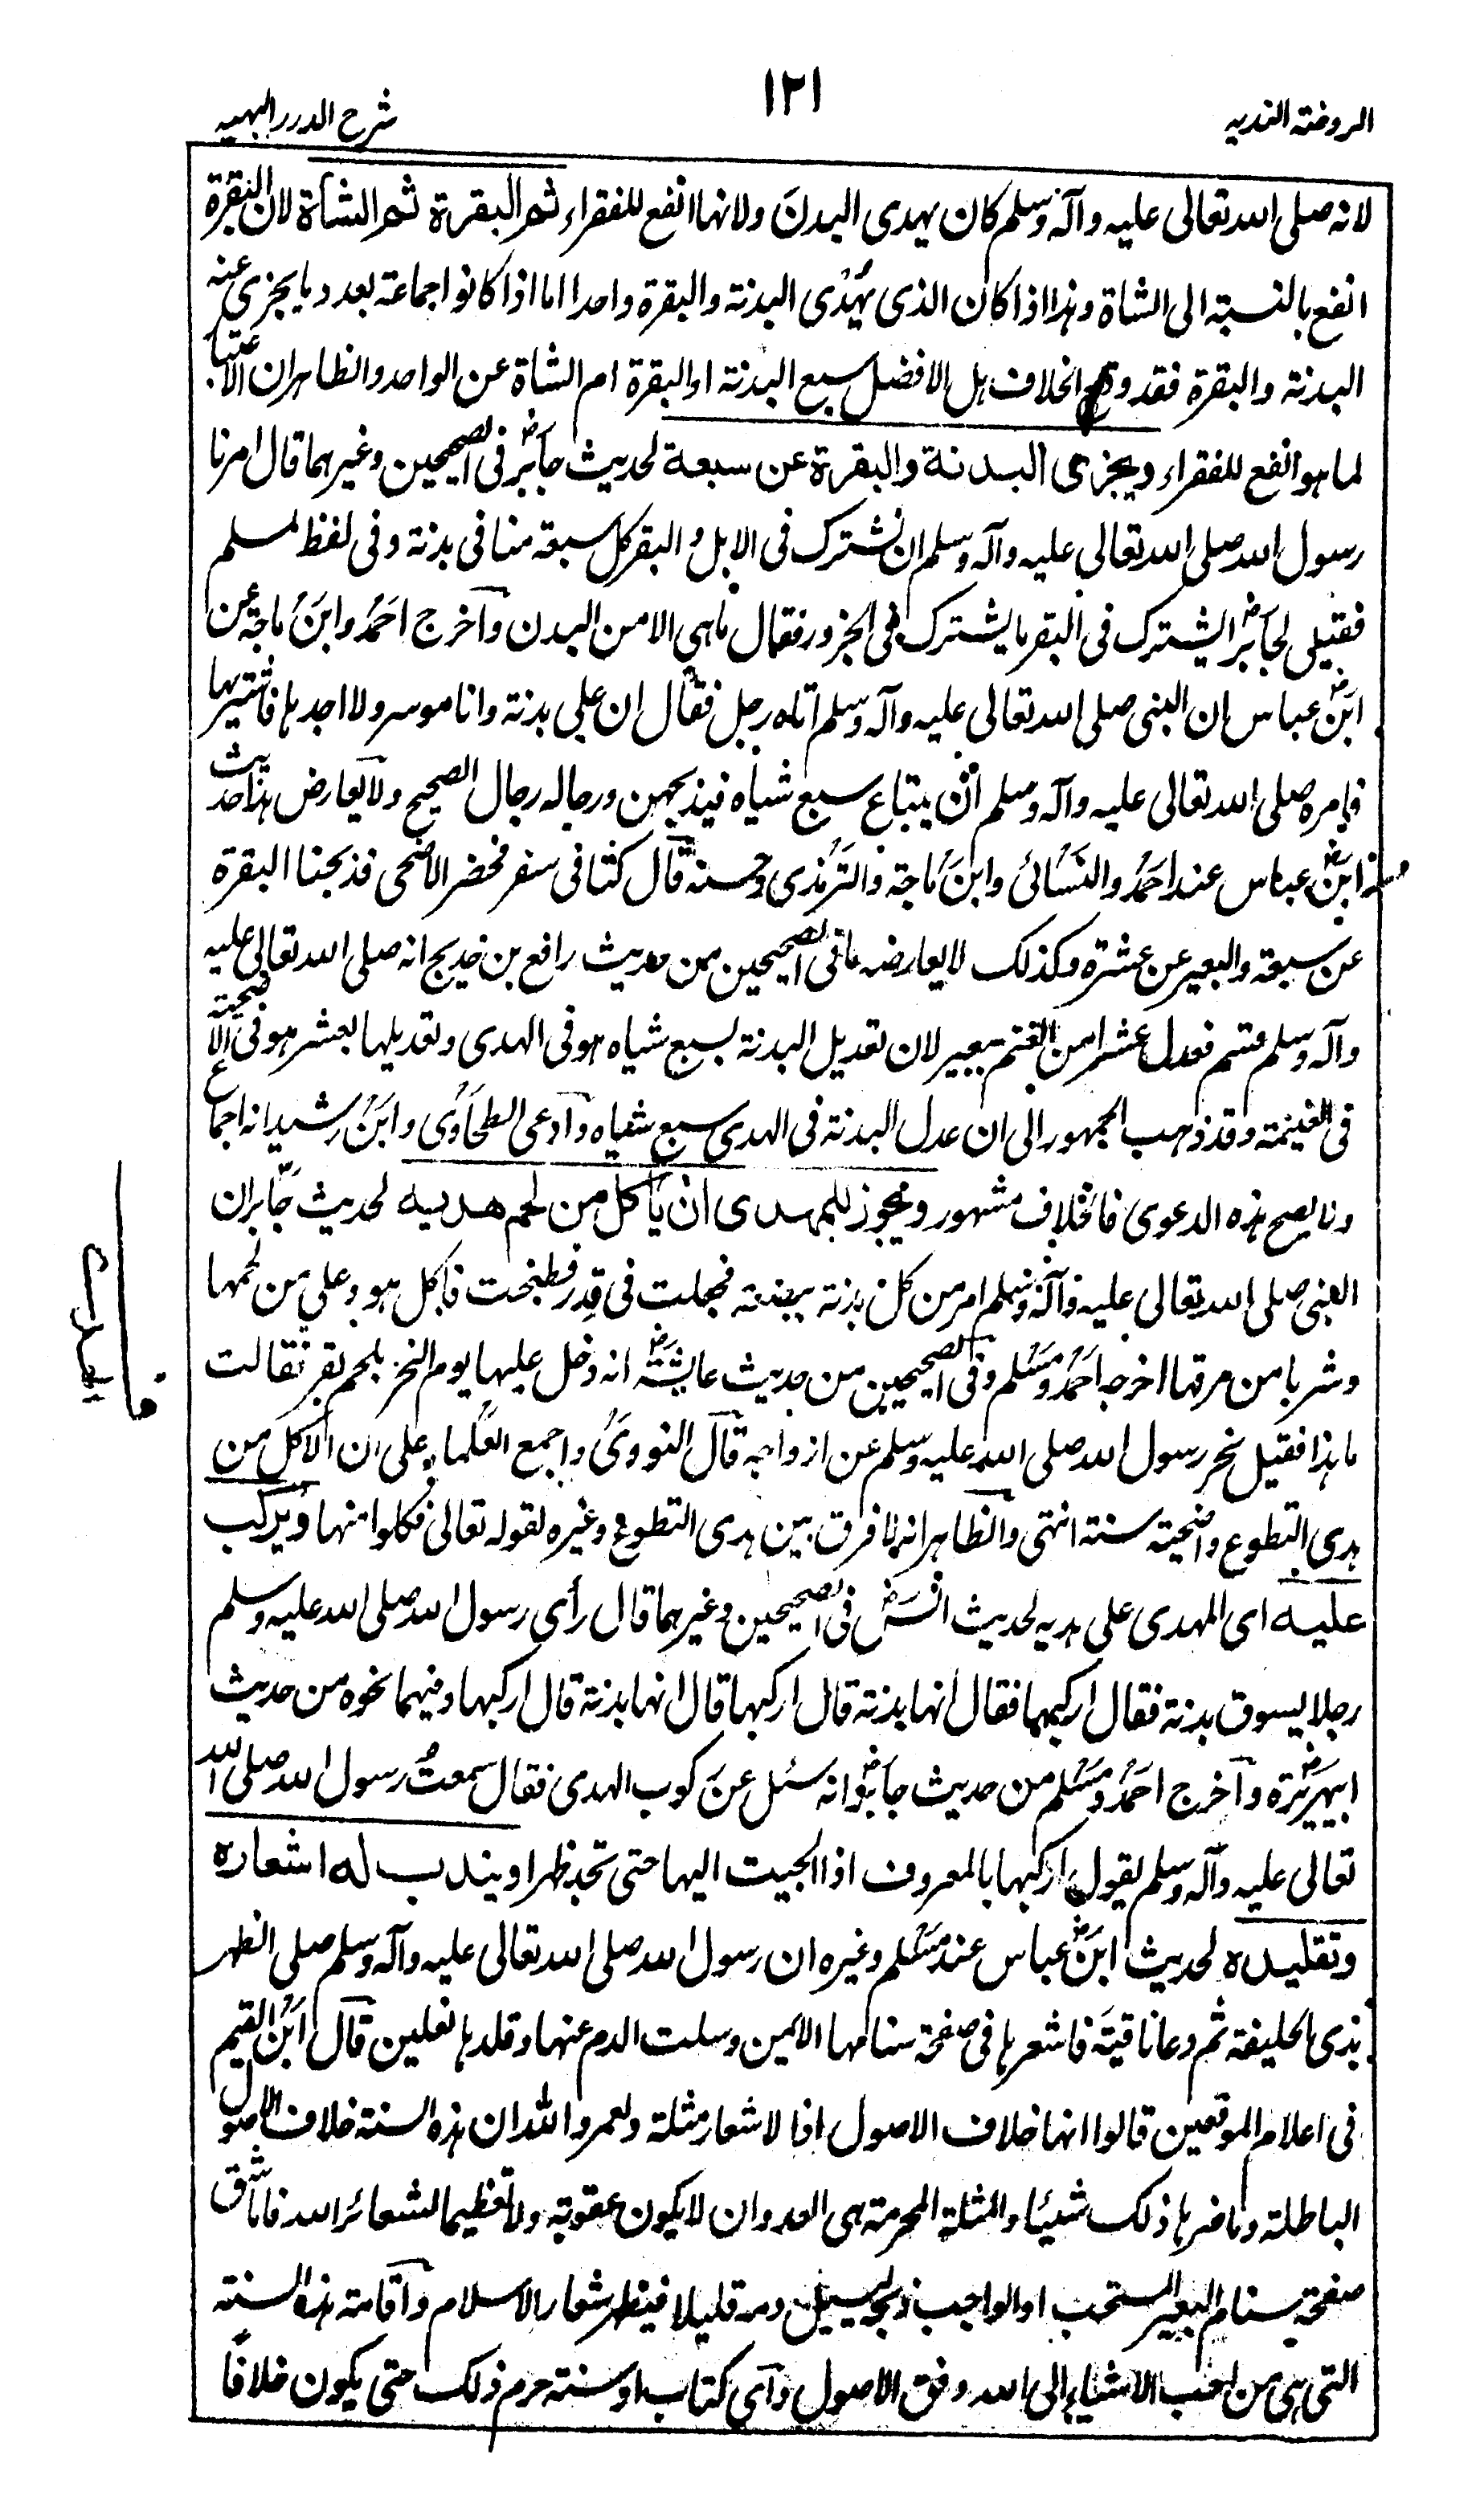 ١٢١
الروضة الندیه
شرح الدرر البهیه
لانه صلی الله تعالی علیه وآله وسلم کان یهدی البدن ولانها انفع للفقراء ثم البقرة ثم الشاة لان البقرة
انفع بالنسبة الی الشاة وهذا اذا کان الذی یهدی البدنة والبقرة واحدا اما اذا کانوا جماعة بعدد ما یجزی عنه
البدنة والبقرة فقد وقع الخلاف هل الافضل سبع البدنة او البقرة ام الشاة عن الواحد والظاهر ان الاعتبار
لما هو انفع للفقراء ویجزی البدنة والبقرة عن سبعة لحدیث جابر فی الصحیحین وغیرهما قال امرنا
رسول الله صلی الله تعالی علیه وآله وسلم ان نشترک فی الابل والبقر کل سبعة منا فی بدنة وفی لفظ لمسلم
فقیل لجابر ایشترک فی البقر ما یشترک فی الجزور فقال ما هی الا من البدن واخرج احمد وابن ماجة عن
ابن عباس ان النبی صلی الله تعالی علیه وآله وسلم اتاه رجل فقال ان علی بدنة وانا موسر ولا اجدها فاشتریها
فامره صلی الله تعالی علیه وآله وسلم ان یبتاع سبع شیاه فیذبحهن ورجاله رجال الصحیح ولا یعارض هذا حدیث
ابن عباس عند احمد والنسائی وابن ماجة والترمذی وحسنه قال کنا فی سفر فحضر الاضحی فذبحنا البقرة
عن سبعة والبعیر عن عشرة وکذلک لا یعارضه ما فی الصحیحین من حدیث رافع بن خدیج انه صلی الله تعالی علیه
وآله وسلم قسم فعدل عشرا من الغنم ببعیر لان تعدیل البدنة بسبع شیاه هو فی الهدی وتعدیلها بعشر هو فی الاضحیة
فی الغنیمة وقد ذهب الجمهور الی ان عدل البدنة فی الهدی سبع شیاه وادعی الطحاوی وابن رشد انه اجماع
ولا یصح هذه الدعوی فالخلاف مشهور ویجوز للمهدی ان یأکل من لحم هدیه لحدیث جابر ان
النبی صلی الله تعالی علیه وآله وسلم امر من کل بدنة ببضعة فجعلت فی قدر فطبخت فاکل هو وعلی من لحمها
وشربا من مرقها اخرجه احمد ومسلم وفی الصحیحین من حدیث عایشة انه دخل علیها یوم النحر بلحم بقر فقالت
ما هذا فقیل نحر رسول الله صلی الله علیه وسلم عن ازواجه قال النووی واجمع العلماء علی ان الاکل من
هدی التطوع واضحیته سنة انتهی والظاهر انه لا فرق بین هدی التطوع وغیره لقوله تعالی فکلوا منها ویرکب
علیه ای المهدی علی هدیه لحدیث انس فی الصحیحین وغیرهما قال رأی رسول الله صلی الله علیه وسلم
رجلا یسوق بدنة فقال ارکبها فقال انها بدنة قال ارکبها قال انها بدنة قال ارکبها وفیهما نحوه من حدیث
ابی هریرة واخرج احمد ومسلم من حدیث جابر انه سئل عن رکوب الهدی فقال سمعت رسول الله صلی الله
تعالی علیه وآله وسلم یقول ارکبها بالمعروف اذا الجیت الیها حتی تجد ظهرا ویندب له اشعاره
وتقلیده لحدیث ابن عباس عند مسلم وغیره ان رسول الله صلی الله تعالی علیه وآله وسلم صلی الظهر
بذی الحلیفة ثم دعا ناقته فاشعرها فی صفحة سنامها الایمن وسلت الدم عنها وقلدها نعلین قال ابن القیم
فی اعلام الموقعین قالوا انها خلاف الاصول اذ الاشعار مثلة ولعمر والله ان هذه السنة خلاف الاصول
الباطلة وما ضرها ذلک شیئا والمثلة المحرمة هی العدوان لا یکون عقوبة ولا تعظیما لشعائر الله فاما شق
صفحة سنام البعیر المستحب او الواجب ذبحه لیسیل دمه قلیلا فیظهر شعار الاسلام واقامة هذه السنة
التی هی من احب الاشیاء الی الله وفق الاصول وای کتاب او سنة حرم ذلک حتی یکون خلافا